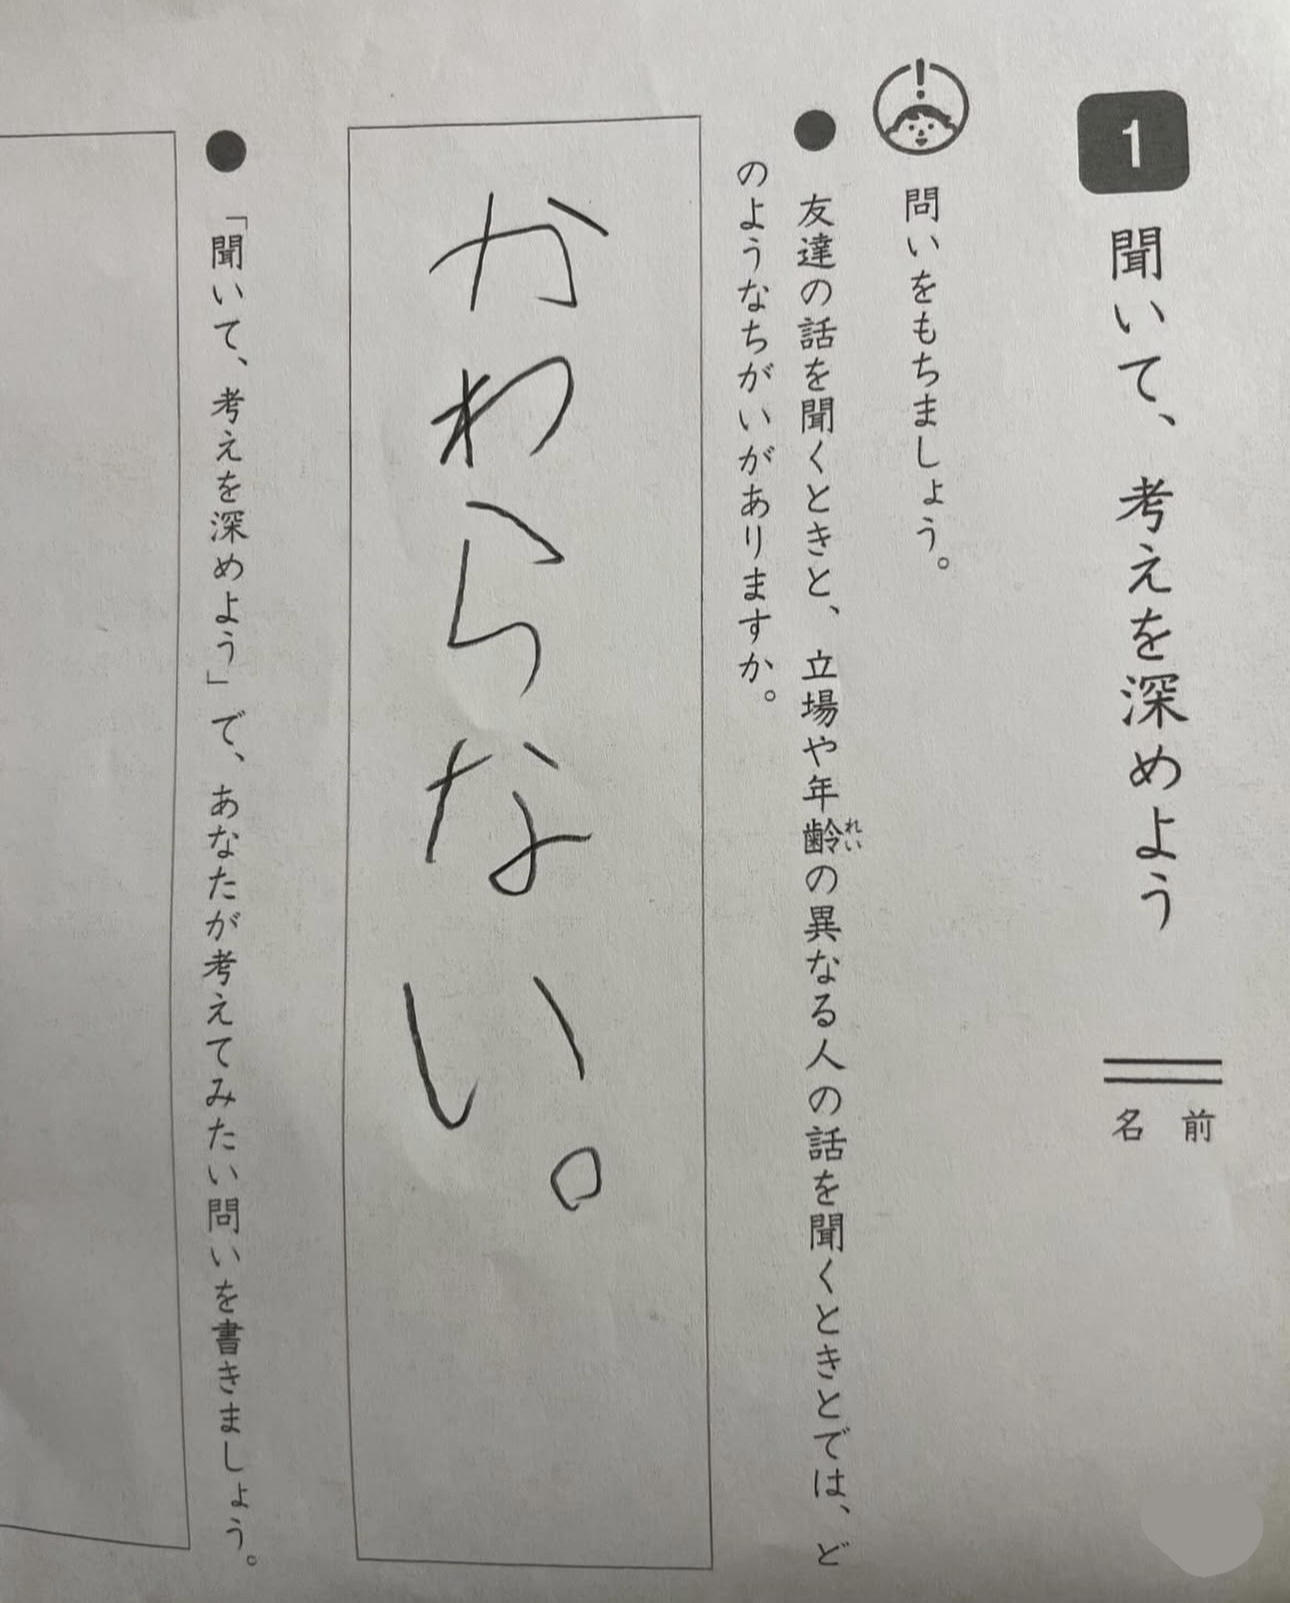 1 聞いて、考えを深めよう
名前
問いをもちましょう。
● 友達の話を聞くときと、立場や年齢の異なる人の話を聞くときとでは、ど
れい
のようなちがいがありますか。
かわらない。
● 「聞いて、考えを深めよう」で、あなたが考えてみたい問いを書きましょう。